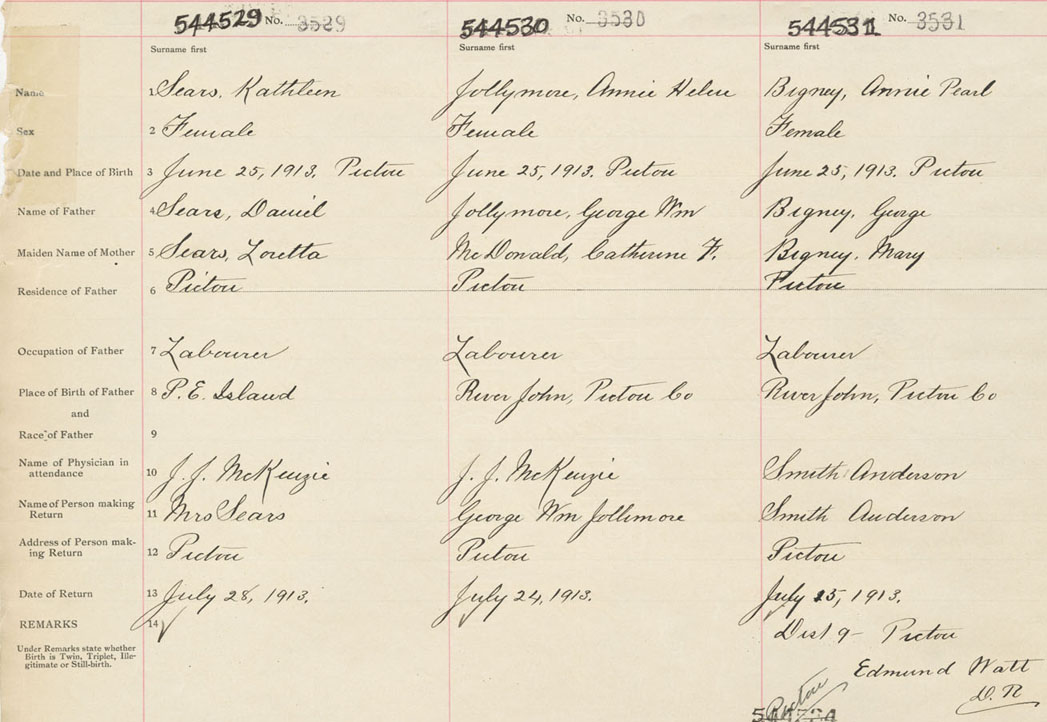 544529 No. 3529 544530 No. 3530 544531 No. 3531
Surname first Surname first Surname first
Name 1 Sears, Kathleen Jollymore, Annie Helen Bigney, Annie Pearl
Sex 2 Female Female Female
Date and Place of Birth 3 June 25, 1913. Pictou June 25, 1913. Pictou June 25, 1913. Pictou
Name of Father 4 Sears, Daniel Jollymore, George Wm Bigney, George
Maiden Name of Mother 5 Sears, Loretta McDonald, Catherine F. Bigney, Mary
Residence of Father 6 Pictou Pictou Pictou
Occupation of Father 7 Labourer Labourer Labourer
Place of Birth of Father 8 P.E. Island River John, Pictou Co River John, Pictou Co
and
Race of Father 9
Name of Physician in
attendance 10 J. J. McKenzie J. J. McKenzie Smith Anderson
Name of Person making
Return 11 Mrs Sears George Wm Jollimore Smith Anderson
Address of Person mak-
ing Return 12 Pictou Pictou Pictou
Date of Return 13 July 28, 1913. July 24, 1913. July 25, 1913.
REMARKS 14 Dist 9 - Pictou
Under Remarks state whether
Birth is Twin, Triplet, Ille-
gitimate or Still-birth.
Edmund Watt
D. R
Pictou